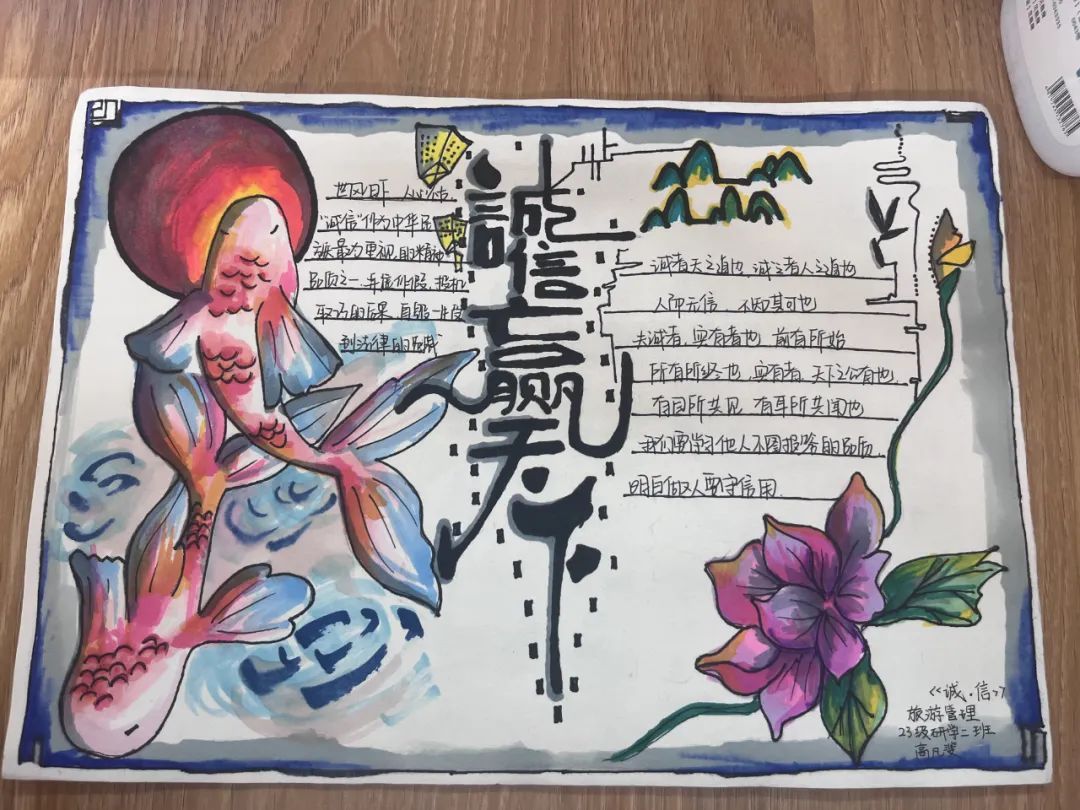 世风日下 人心不古
"诚信"作为中华民
族最为重视的精神
品质之一,弄虚作假、投机
取巧的后果,自毁一生
到法律的
誠信赢天下
诚者天之道也 诚之者人之道也
人而无信,不知其可也
夫诚者,实有者也 前有所始
所有所终也 实有者,天下之公有也
有目所共见 有耳所共闻也
我们要学习他人不图报答的品质.
明白做人要守信用.
《诚·信》
旅游管理
23级研学二班
高凡